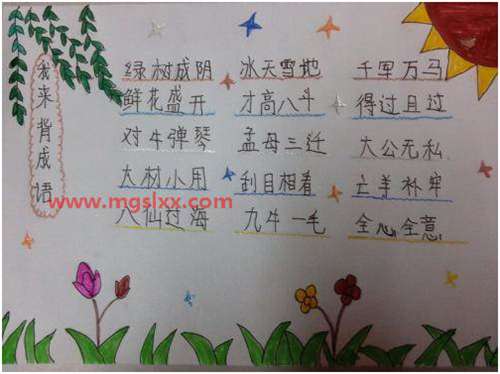 我来背成语
绿树成阴 冰天雪地 千军万马
鲜花盛开 才高八斗 得过且过
对牛弹琴 孟母三迁 大公无私
大材小用 刮目相看 亡羊补牢
www.mgslxx.com
八仙过海 九牛一毛 全心全意